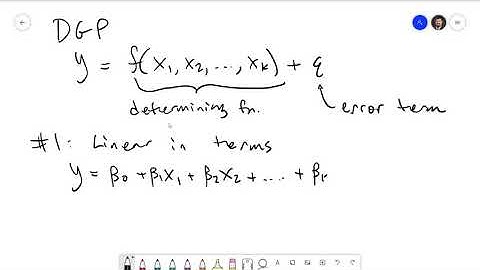 DGP
y = f(x₁, x₂, ..., xₖ) + ε
determining fn.
error term
#1: Linear in terms
y = β₀ + β₁x₁ + β₂x₂ + .... + βₖ